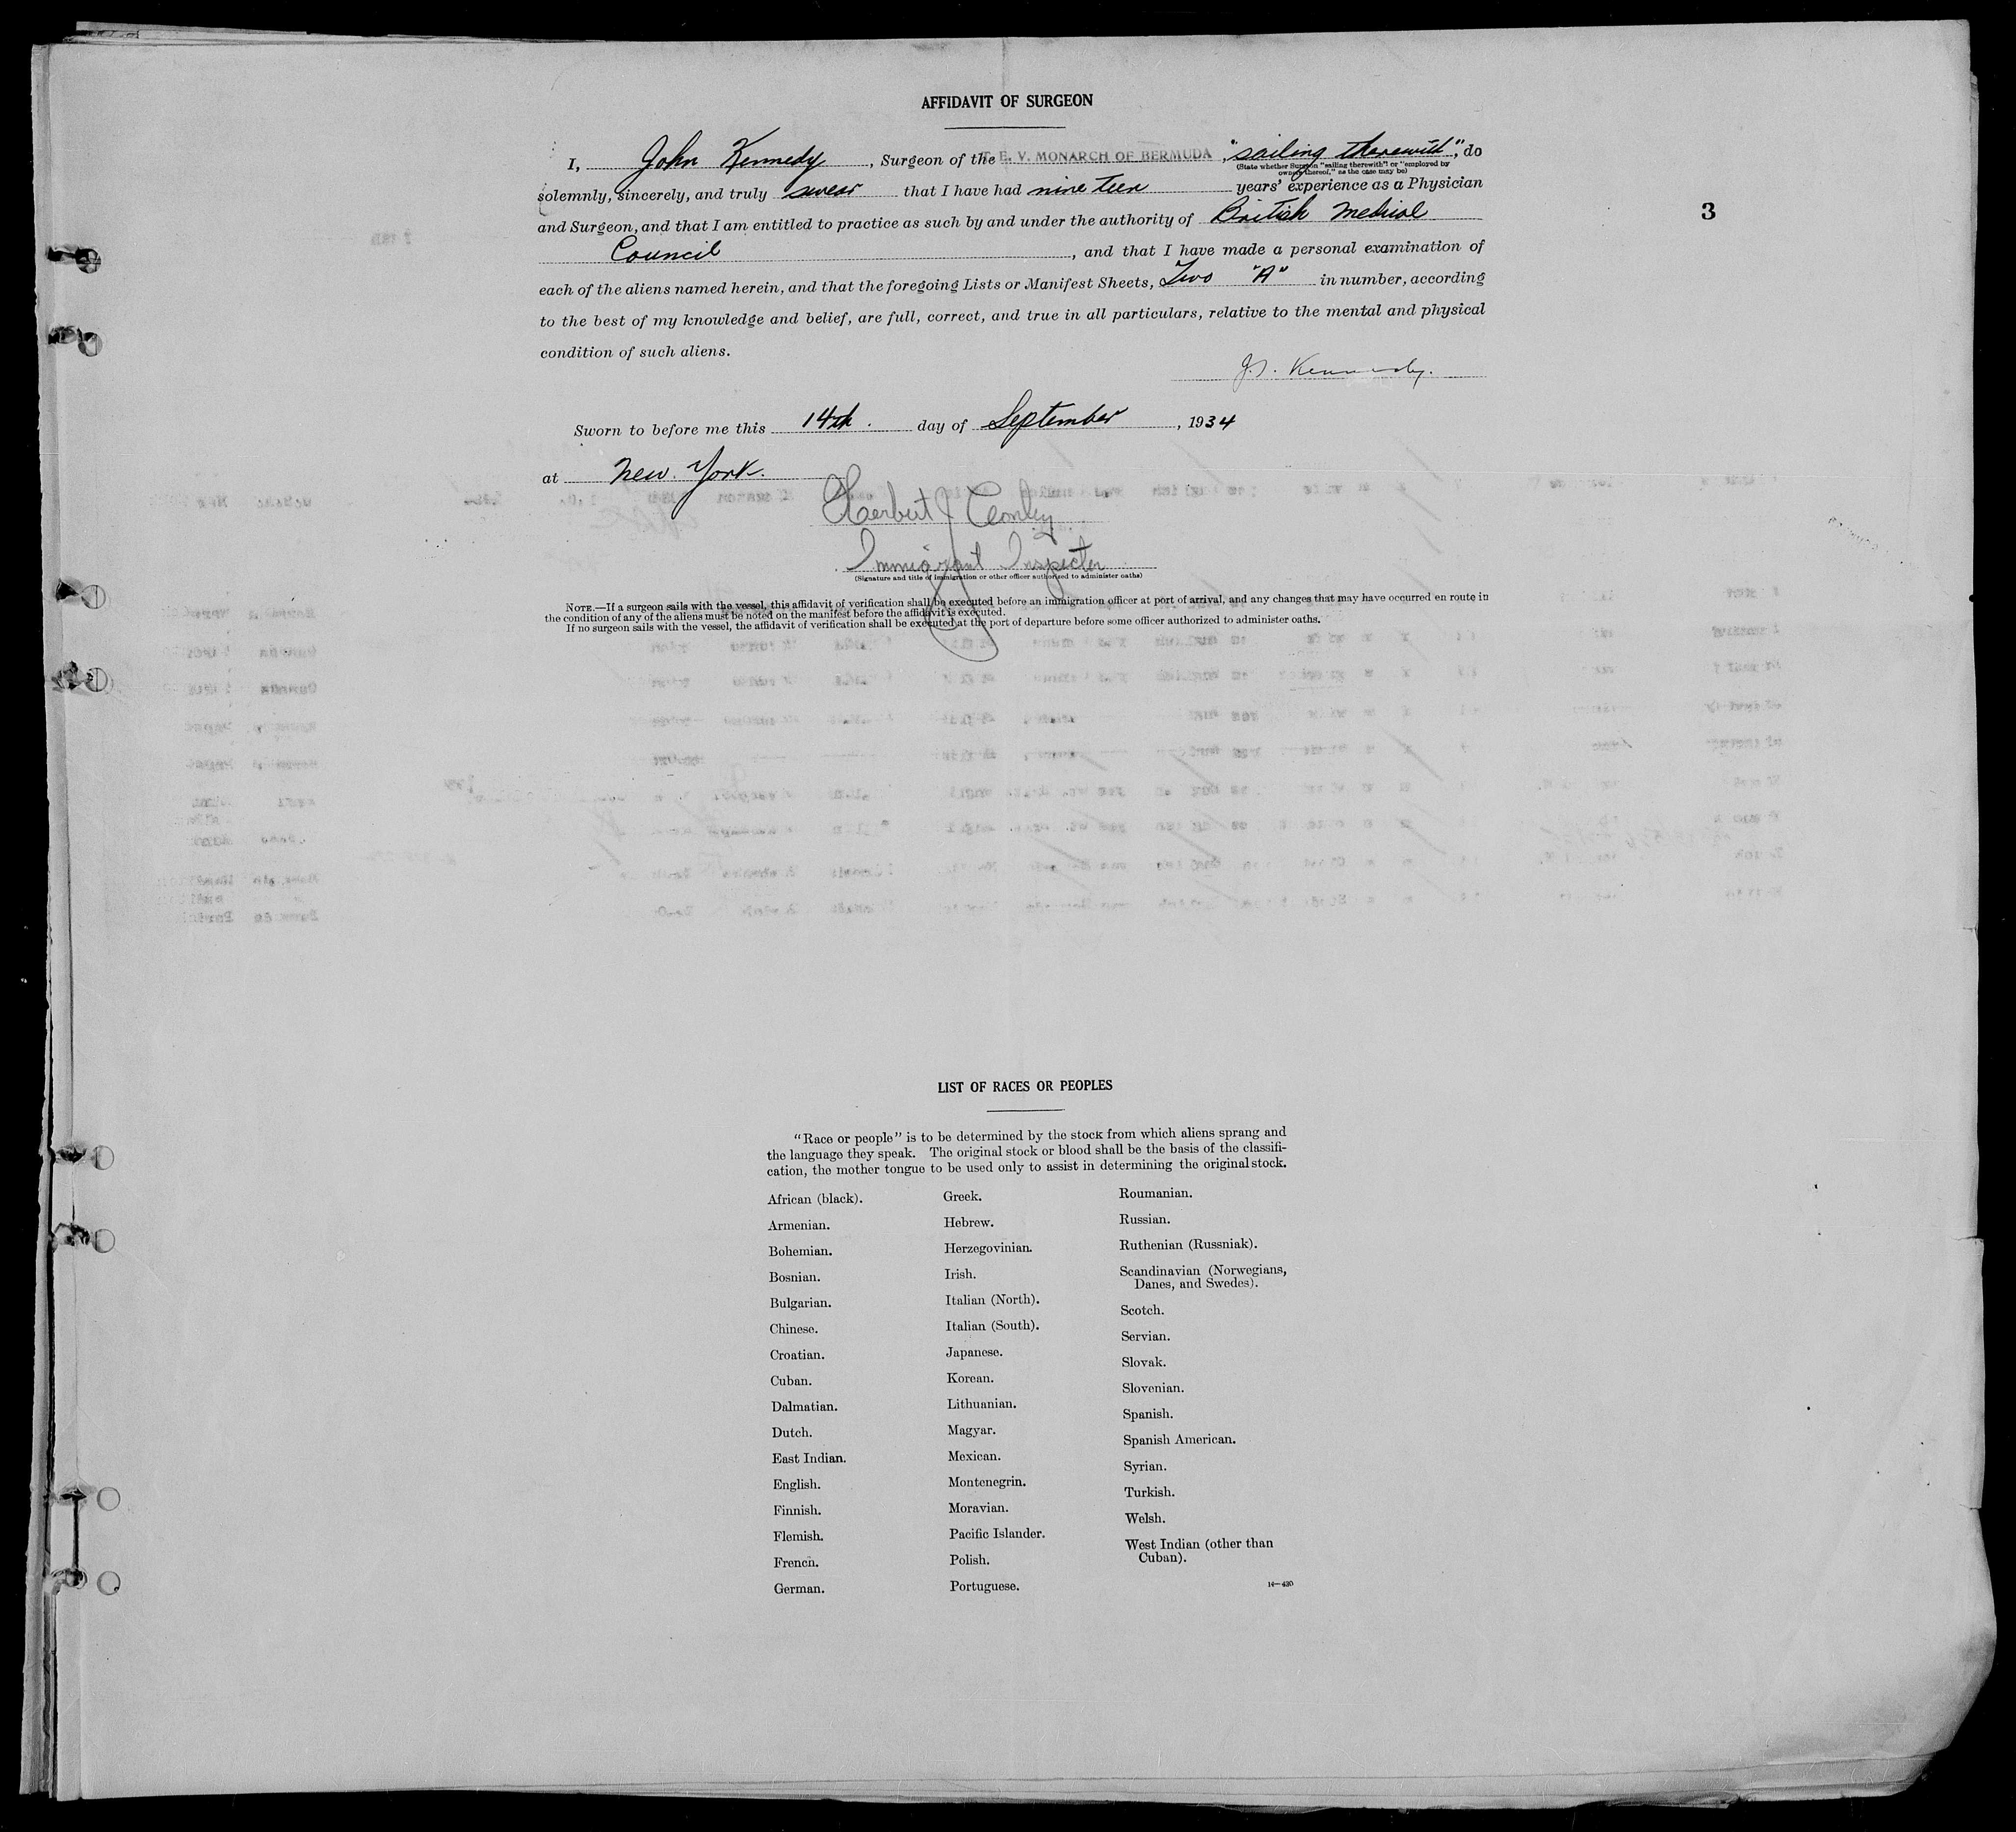 AFFIDAVIT OF SURGEON
I, John Kennedy, Surgeon of the T. E. V. MONARCH OF BERMUDA, "sailing therewith", do
(State whether Surgeon "sailing therewith" or "employed by
owners thereof," as the case may be)
solemnly, sincerely, and truly swear that I have had nine teen years' experience as a Physician
3
and Surgeon, and that I am entitled to practice as such by and under the authority of British Medical
Council, and that I have made a personal examination of
each of the aliens named herein, and that the foregoing Lists or Manifest Sheets, Two "A" in number, according
to the best of my knowledge and belief, are full, correct, and true in all particulars, relative to the mental and physical
condition of such aliens.
Kennedy.
Sworn to before me this 14th. day of September, 1934
at New York.
Herbert J
Immigrant Inspector
(Signature and title of immigration or other officer authorized to administer oaths)
NOTE.—If a surgeon sails with the vessel, this affidavit of verification shall be executed before an immigration officer at port of arrival, and any changes that may have occurred en route in
the condition of any of the aliens must be noted on the manifest before the affidavit is executed.
If no surgeon sails with the vessel, the affidavit of verification shall be executed at the port of departure before some officer authorized to administer oaths.
LIST OF RACES OR PEOPLES
"Race or people" is to be determined by the stock from which aliens sprang and
the language they speak. The original stock or blood shall be the basis of the classifi-
cation, the mother tongue to be used only to assist in determining the original stock.
African (black).
Armenian.
Bohemian.
Bosnian.
Bulgarian.
Chinese.
Croatian.
Cuban.
Dalmatian.
Dutch.
East Indian.
English.
Finnish.
Flemish.
French.
German.
Greek.
Hebrew.
Herzegovinian.
Irish.
Italian (North).
Italian (South).
Japanese.
Korean.
Lithuanian.
Magyar.
Mexican.
Montenegrin.
Moravian.
Pacific Islander.
Polish.
Portuguese.
Roumanian.
Russian.
Ruthenian (Russniak).
Scandinavian (Norwegians,
Danes, and Swedes).
Scotch.
Servian.
Slovak.
Slovenian.
Spanish.
Spanish American.
Syrian.
Turkish.
Welsh.
West Indian (other than
Cuban).
14—430